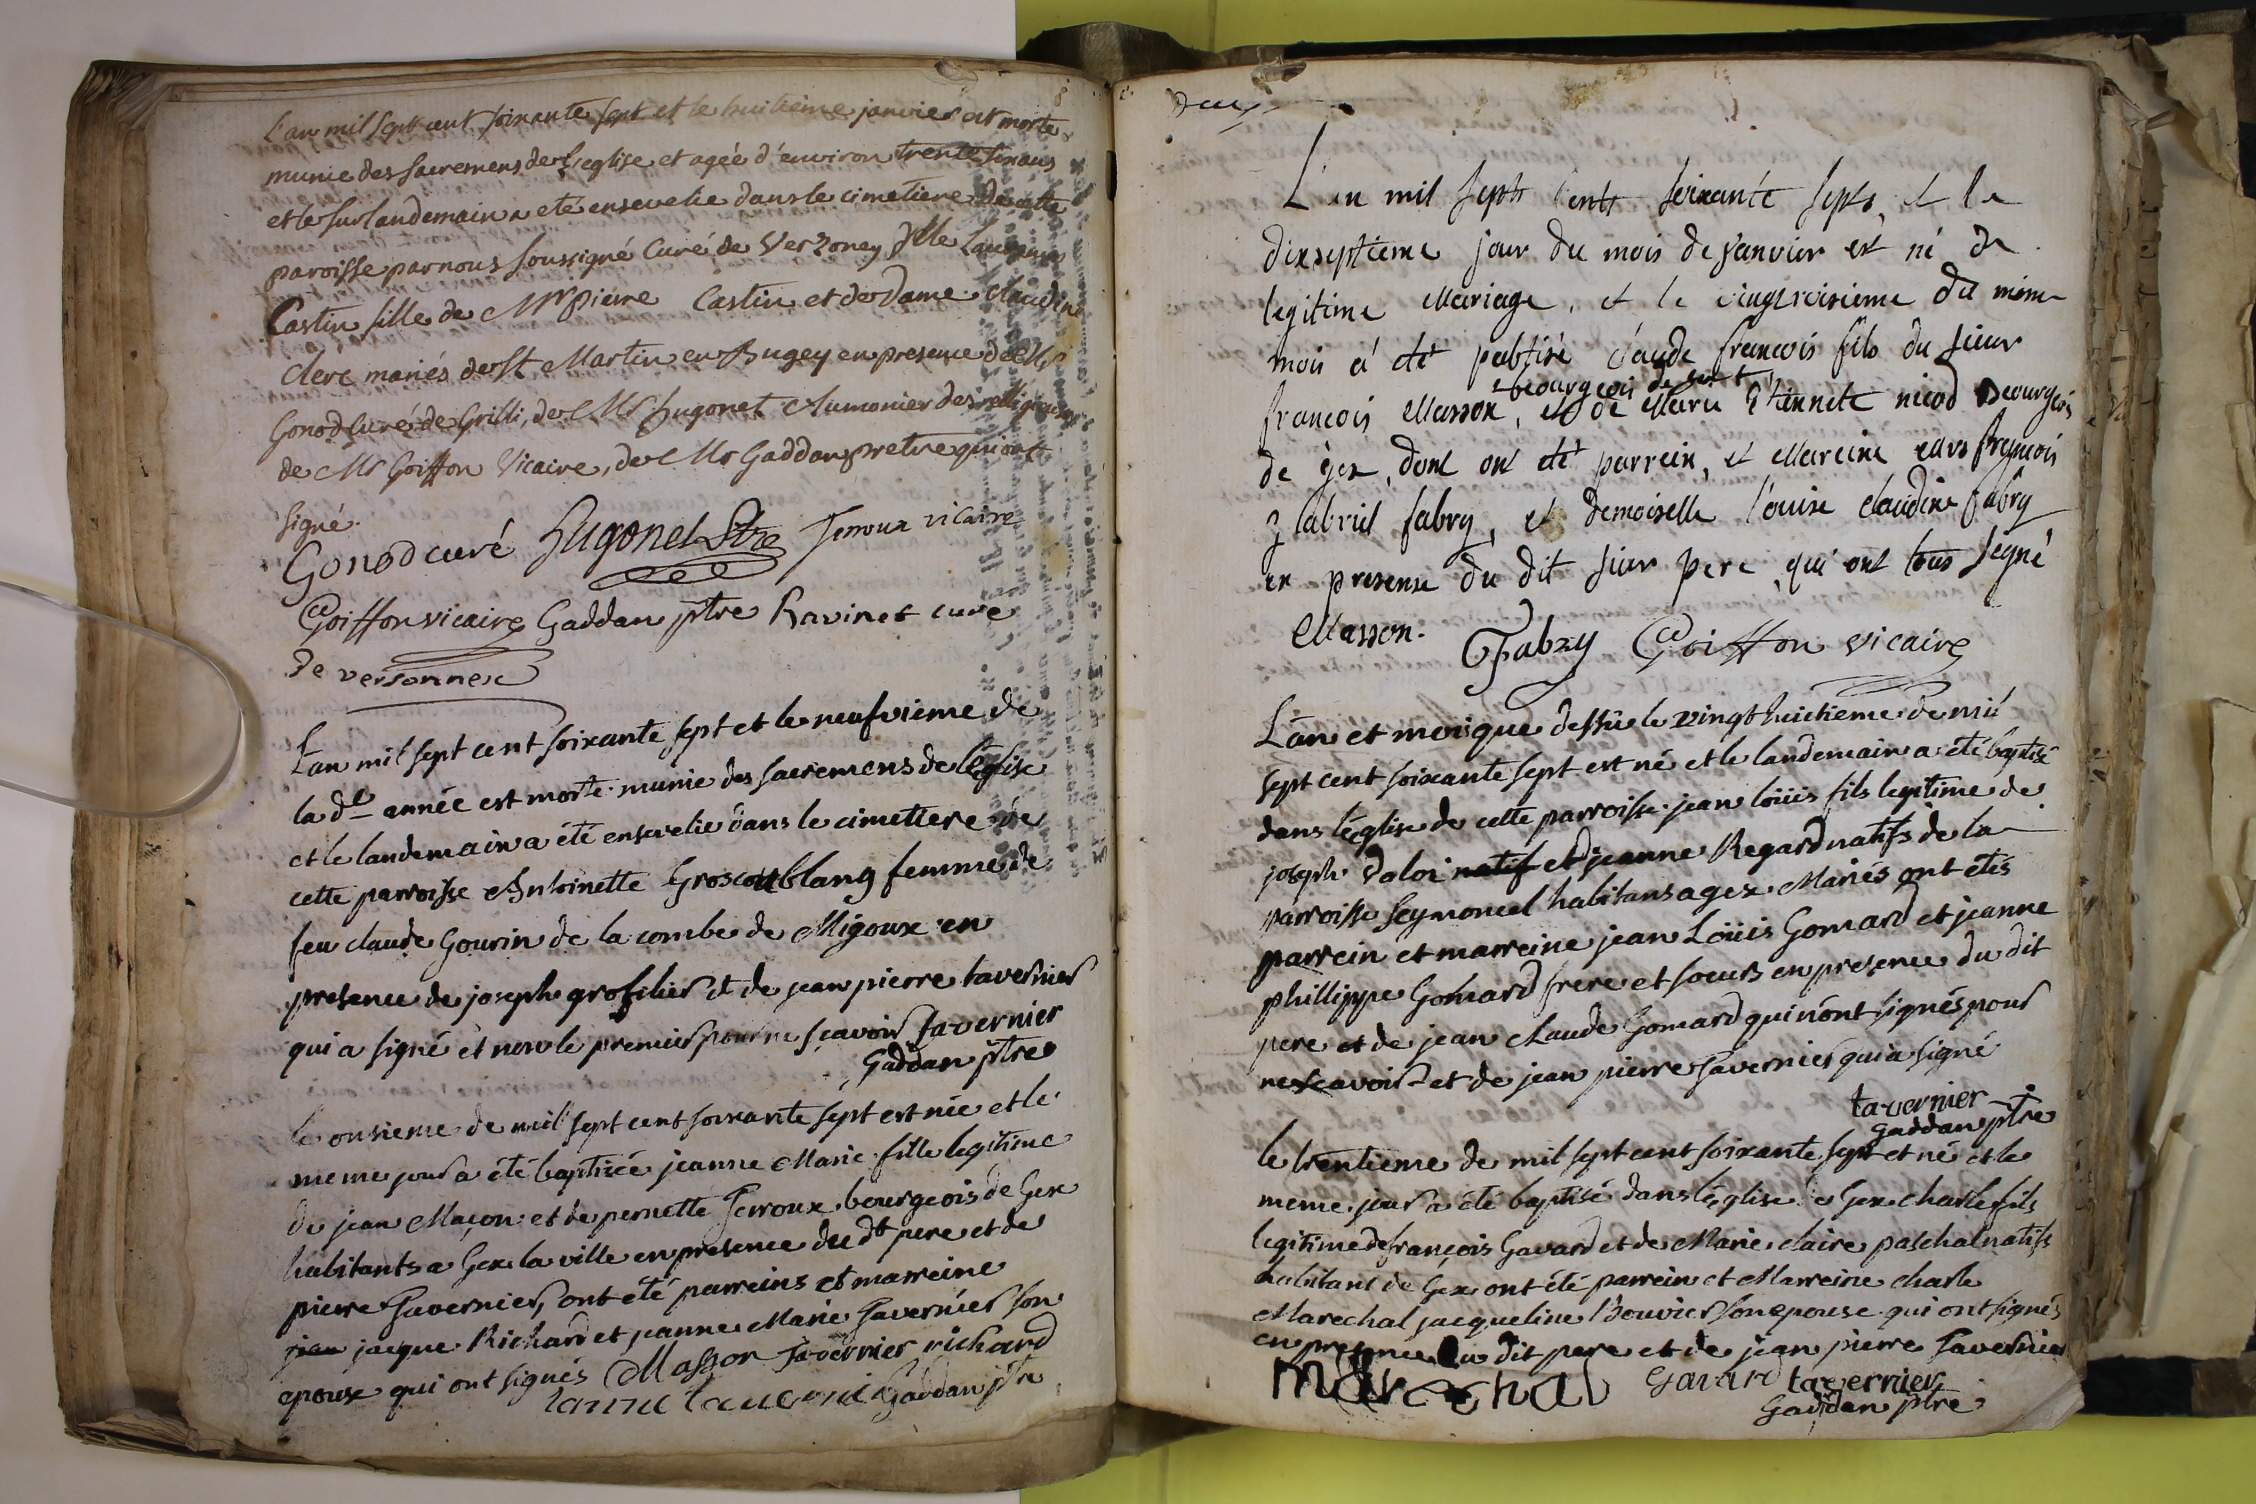 L'an mil sept cent soixante sept et le huitieme janvier est morte
munie des sacremens de l'eglise et agée d'environ trente six ans
et le surlandemain a eté ensevelie dans le cimetiere de cette
paroisse par nous soussigné Curé de Verzoney Dlle
Castin fille de Mr pierre Castin et de dame claudine
Clerc mariés de St Martin en Bugey en presence de Mr
Gonod Curé de Grilli, de Mr hugonet Aumonier des religieuses
de Mr Goiffon Vicaire, de Mr Gaddan pretre qui ont
signé.
Gonod curé hugonet ptre Jerroux vicaire
Goiffon vicaire Gaddan ptre Ravinet curé
de versonnex
L'an mil sept cent soixante sept et le neufvieme de
la de année est morte munie des sacremens de l'église
et le landemain a été ensevelie dans le cimettere de
cette parroisse Antoinette femme de
feu claude Gourin de la combe de Migoux en
presence de joseph grosfilier et de jean pierre tavernier
qui a signé et non le premier pour ne sçavoir tavernier
Gaddan ptre
le onsieme de mil sept cent soixante sept est née et le
meme jour a été baptisée jeanne Marie fille legitime
de jean Maçon et de pernette Jerroux bourgeois de Gex
habitants a Gex la ville en presence du dt pere et de
pierre Tavernier, ont été parreins et marreine
jean jacque Richard et jeanne Marie Tavernier son
epouse qui ont signés Masson Tavernier richard
Gaddan ptre
L'an mil sept cents soixante sept, et le
dixseptieme jour du mois de janvier est né de
legitime Mariage, et le vingtroisieme du même
mois a été pabtisé claude francois fils du sieur
bourgeois de gex
francois Masson, et de Marie Etiennete nicod Bourgeois
de gex, dont ont été parrein, et Mareine francois
gabriel fabry, et demoiselle louise claudine fabry
en presense du dit sieur pere, qui ont tous segné
Masson. Fabry Goiffon vicaire
L'an et mois que dessu le vingt huictieme de mil
sept cent soixante sept est né et le landemain a été baptisé
dans l'église de cette parroisse jean loüis fils legitime de
joseph Daloi natif et jeanne Regard natifs de la
parroisse Seymoncel habitans a gex Mariés ont étés
parrein et marreine jean Loüis Gomard et jeanne
phillippe Gomard frere et soeur en presence du dit
pere et de jean claude Gomard qui n'ont signés pour
ne sçavoir et de jean pierre Tavernier qui a signé
tavernier
Gaddan ptre
le trentieme de mil sept cent soixante sept et né et le
meme jour a été baptisé dans l'église de Gex charle fils
legitime de françois Gavard et de Marie claire paschal natifs
habitant de Gex ont été parrein et Marreine charle
Marechal jacqueline Bouvier son epouse qui ont signés
en presence du dit pere et de jean pierre Tavernier
marechal Gavard tavernier
Gaddan ptre